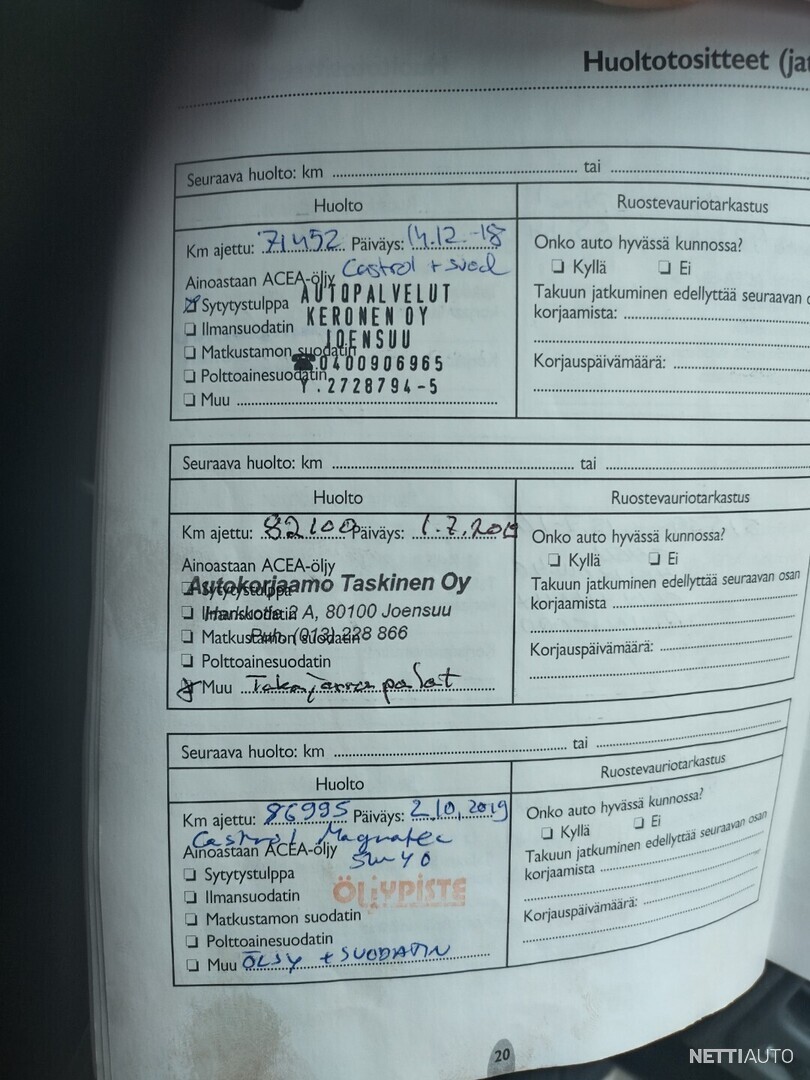 Huoltotositteet (jat
Seuraava huolto: km ........ tai ........
Huolto
Ruostevauriotarkastus
Km ajettu: 71452 Päiväys: 14.12.-18
Castrol + suod
Ainoastaan ACEA-öljy
Sytytystulppa
Ilmansuodatin
Matkustamon suodatin
Polttoainesuodatin
Muu ........
AUTOPALVELUT
KERONEN OY
JOENSUU
☎0400906965
Y.2728794-5
Onko auto hyvässä kunnossa?
Kyllä Ei
Takuun jatkuminen edellyttää seuraavan o
korjaamista: ........
Korjauspäivämäärä: ........
Seuraava huolto: km ........ tai ........
Huolto
Ruostevauriotarkastus
Km ajettu: 82100 Päiväys: 1.7.2019
Ainoastaan ACEA-öljy
Sytytystulppa
Ilmansuodatin
Matkustamon suodatin
Polttoainesuodatin
Muu Takajarrupalat
Autokorjaamo Taskinen Oy
2 A, 80100 Joensuu
Puh. (013) 228 866
Onko auto hyvässä kunnossa?
Kyllä Ei
Takuun jatkuminen edellyttää seuraavan osan
korjaamista ........
Korjauspäivämäärä: ........
Seuraava huolto: km ........ tai ........
Huolto
Ruostevauriotarkastus
Km ajettu: 86995 Päiväys: 2.10.2019
Castrol Magnatec
Ainoastaan ACEA-öljy
5w40
Sytytystulppa
Ilmansuodatin
Matkustamon suodatin
Polttoainesuodatin
Muu ÖLJY + SUODATIN
ÖLJYPISTE
Onko auto hyvässä kunnossa?
Kyllä Ei
Takuun jatkuminen edellyttää seuraavan osan
korjaamista ........
Korjauspäivämäärä: ........
20
NETTIAUTO